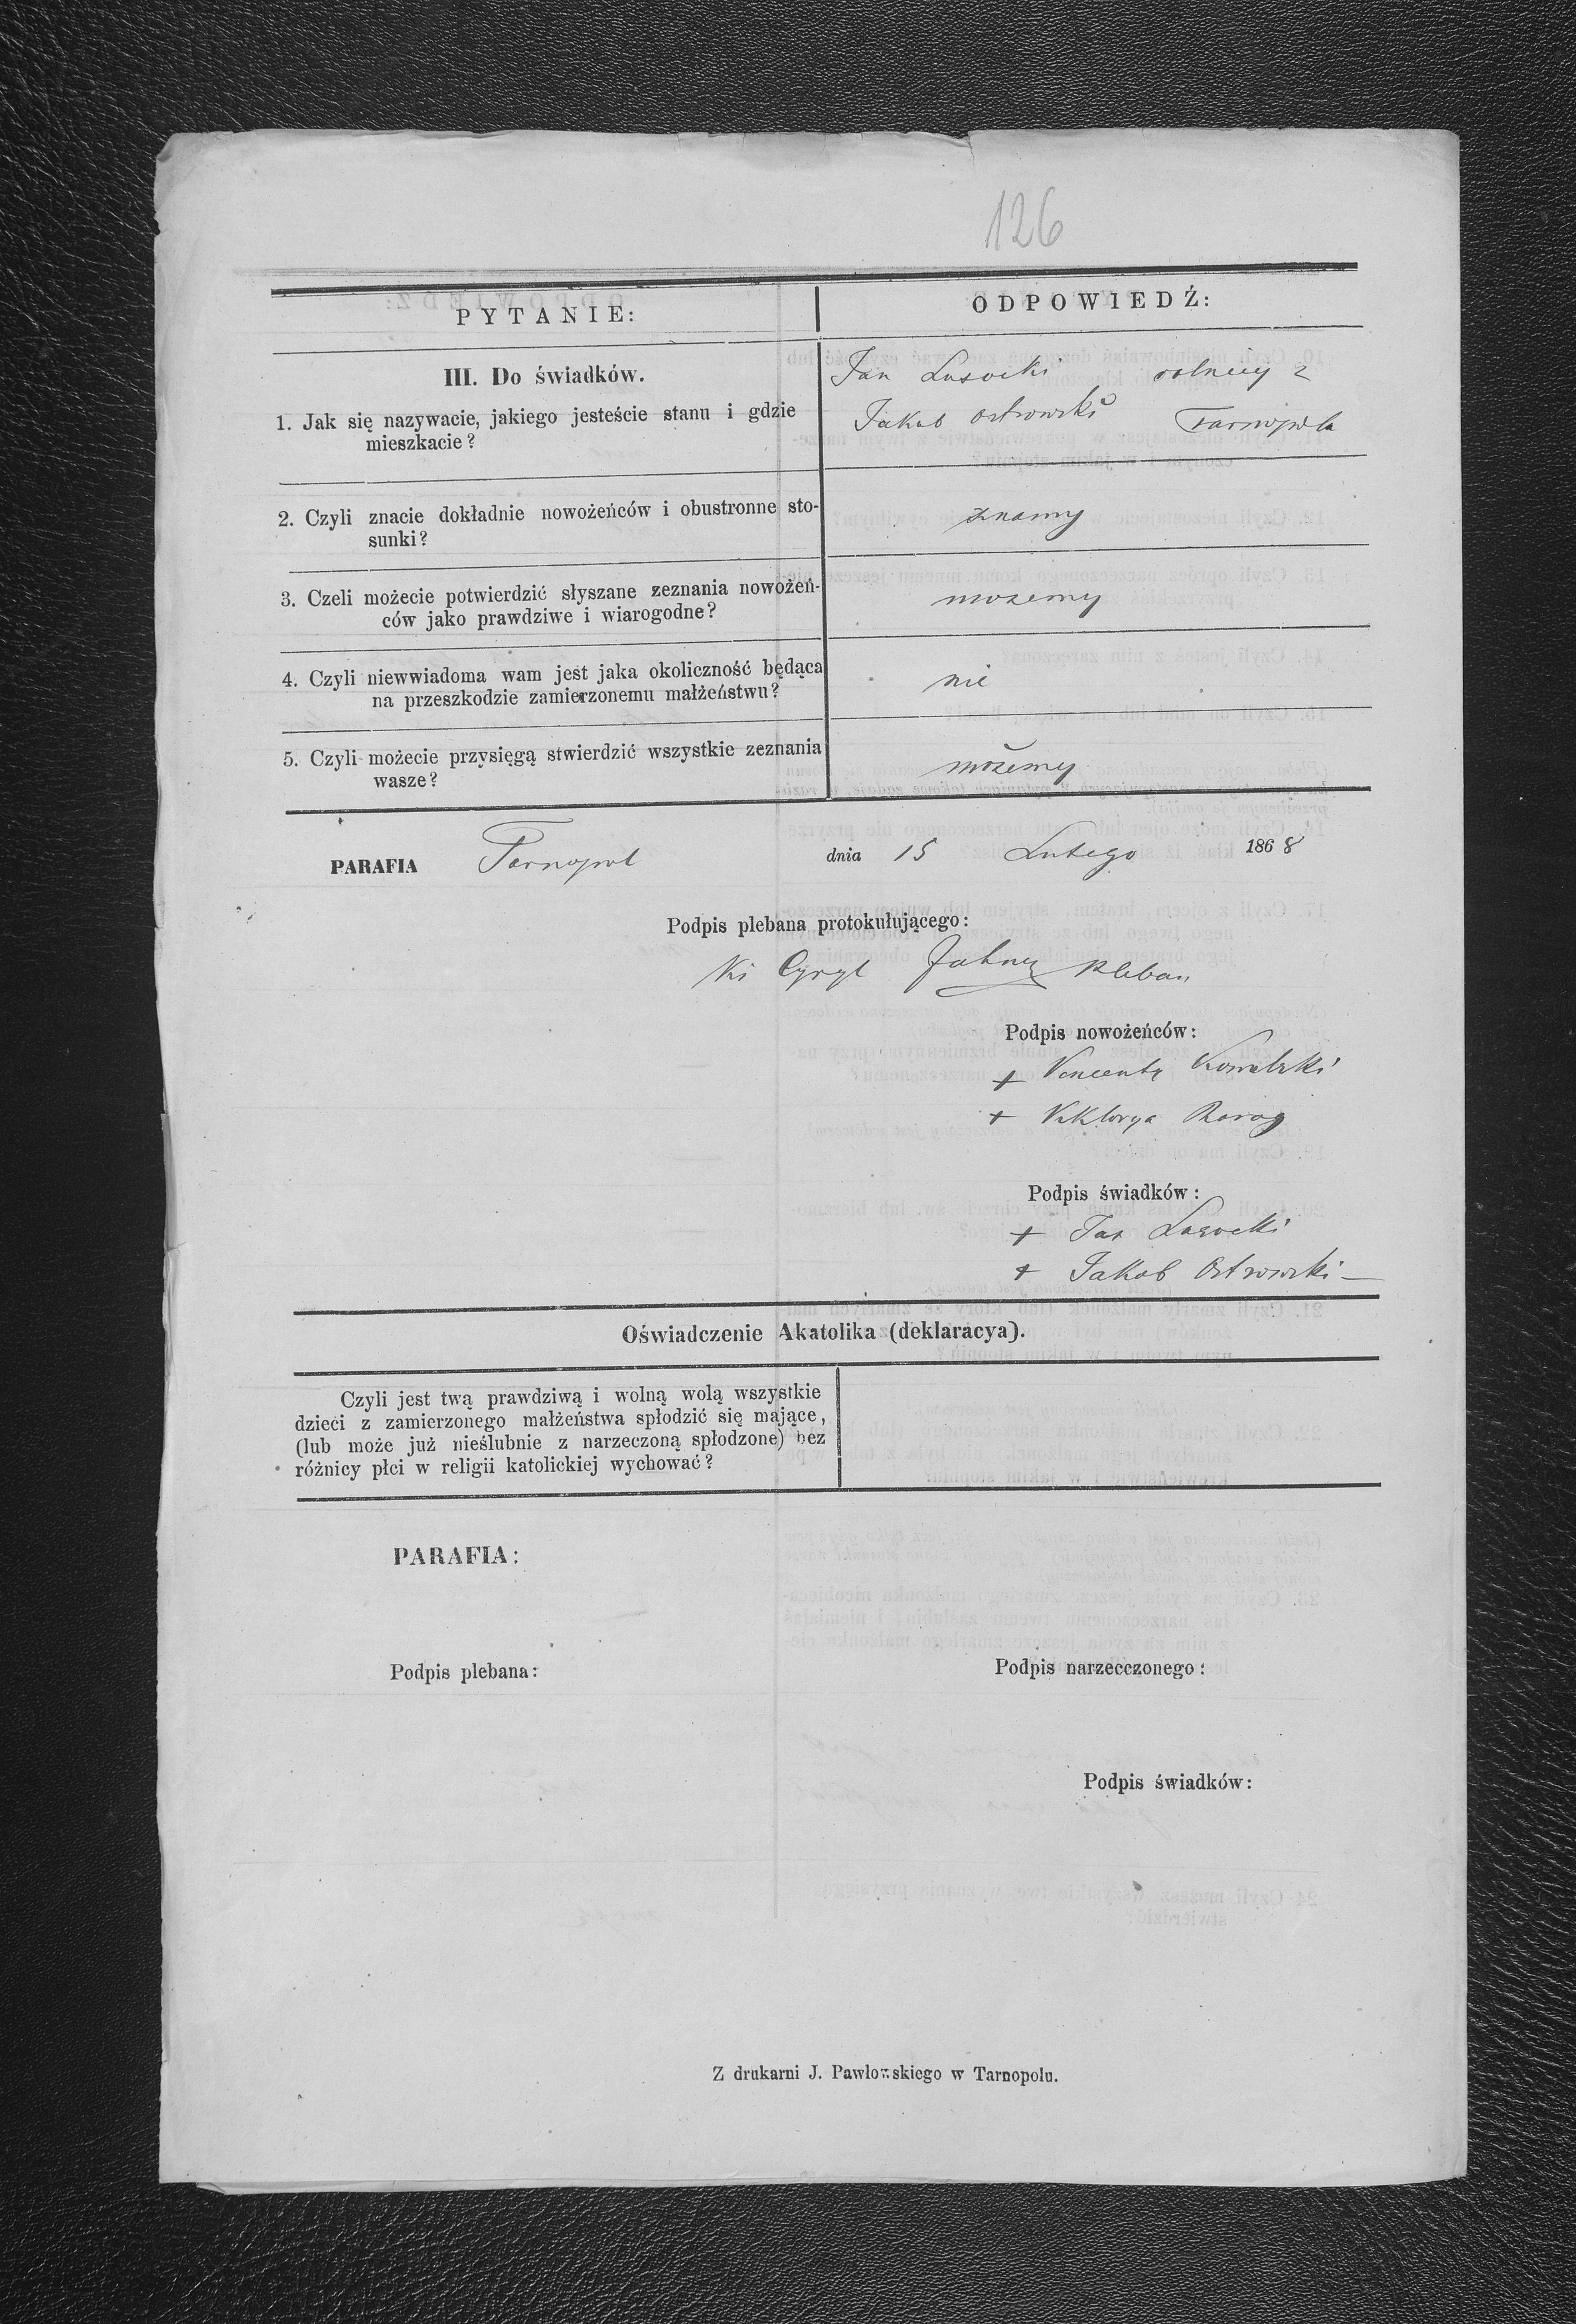 126
PYTANIE:
ODPOWIEDŹ:
III. Do świadków.
1. Jak się nazywacie, jakiego jesteście stanu i gdzie
mieszkacie?
Jan Lasocki rolnicy z
Jakob Ostrowski Tarnopola
2. Czyli znacie dokładnie nowożeńców i obustronne sto-
sunki?
znamy
3. Czeli możecie potwierdzić słyszane zeznania nowożeń-
ców jako prawdziwe i wiarogodne?
mozemy
4. Czyli niewwiadoma wam jest jaka okoliczność będąca
na przeszkodzie zamierzonemu małżeństwu?
nie
5. Czyli możecie przysięgą stwierdzić wszystkie zeznania
wasze?
możemy
PARAFIA Tarnopol dnia 15 Lutego 1868
Podpis plebana protokułującego:
Cyryl pleban
Podpis nowożeńców:
+ Vincenty Kowalski
+ Viktorya
Podpis świadków:
+ Jan Lasocki
+ Jakob Ostrowski
Oświadczenie Akatolika (deklaracya).
Czyli jest twą prawdziwą i wolną wolą wszystkie
dzieci z zamierzonego małżeństwa spłodzić się mające,
(lub może już nieślubnie z narzeczoną spłodzone) bez
różnicy płci w religii katolickiej wychować?
PARAFIA:
Podpis plebana:
Podpis narzecczonego:
Podpis świadków:
Z drukarni J. Pawłowskiego w Tarnopolu.